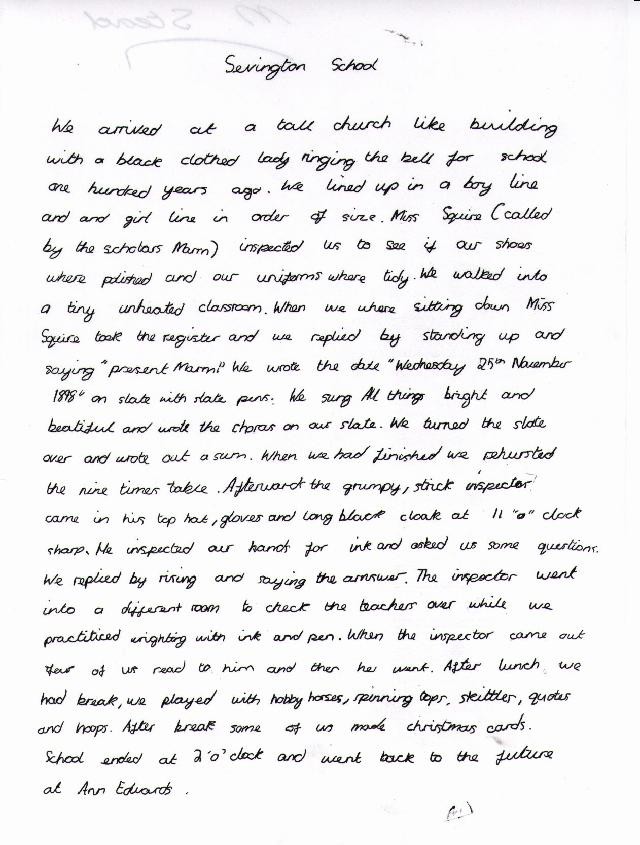 Sevington School
We arrived at a tall church like building
with a black clothed lady ringing the bell for school
one hundred years ago. We lined up in a boy line
and and girl line in order of size. Miss Squire (called
by the scholars Marm) inspected us to see if our shoes
where polished and our uniforms where tidy. We walked into
a tiny unheated classroom. When we where sitting down Miss
Squire took the register and we replied by standing up and
saying "present Marm!" We wrote the date "Wednesday 25th November
1898" on slate with slate pens. We sung All things bright and
beatiful and wrote the choras on our slate. We turned the slate
over and wrote out a sum. When we had finished we rehursted
the nine times table. Afterward the grumpy, strick inspector
came in his top hat, gloves and long black cloak at 11 "o" clock
sharp. He inspected our hands for ink and asked us some questions.
We replied by rising and saying the arnswer. The inspector went
into a different room to check the teachers over while we
practiticed wrighting with ink and pen. When the inspector came out
four of us read to him and then he went. After lunch we
had break, we played with hobby horses, spinning tops, skittles, quotes
and hoops. After break some of us made christmas cards.
School ended at 2 'o' clock and went back to the future
at Ann Edwards.